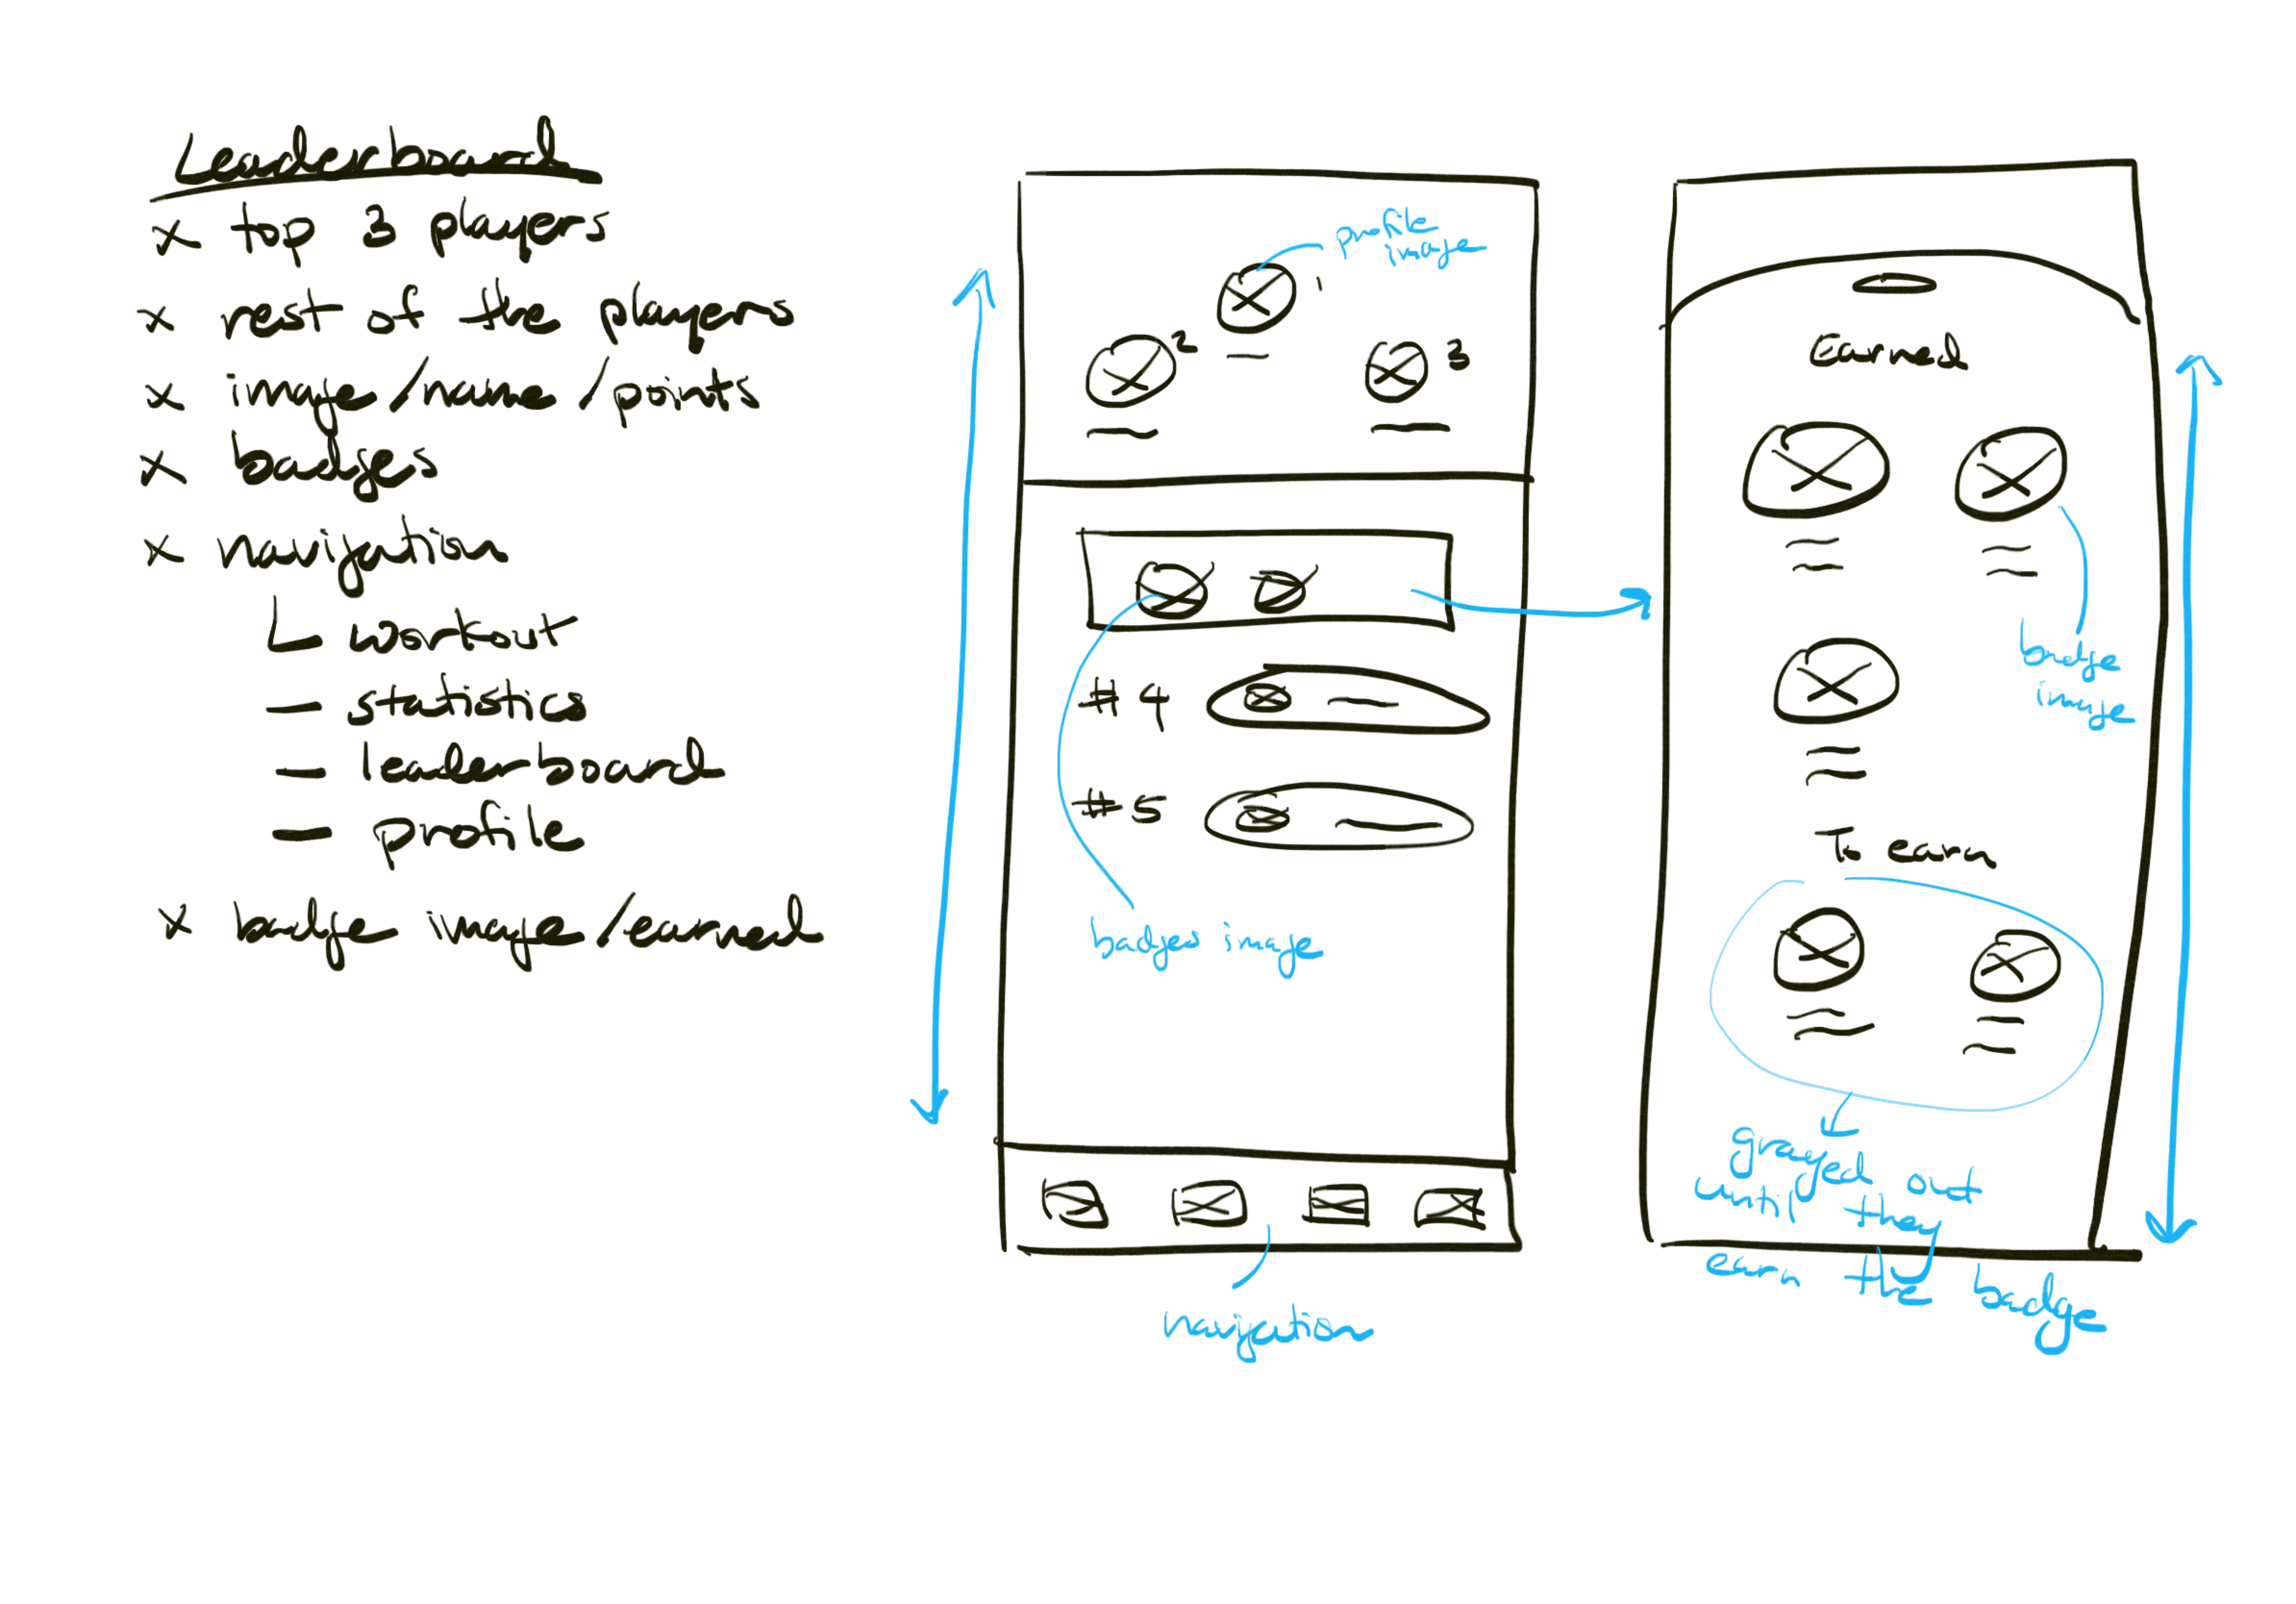 Leaderboard
x top 3 players
x rest of the players
x image/name/points
x badges
x navigation
L workout
- statistics
- leaderboard
- profile
x badge image/earned
profile
image
1
2
3
#4
#5
badges image
navigation
Earned
badge
image
To earn
grayed out
until they
earn the badge